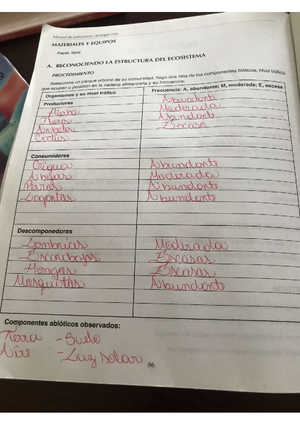 Manual de Laboratorio - Biología
MATERIALES Y EQUIPOS
Papel, lápiz.
A. RECONOCIENDO LA ESTRUCTURA DEL ECOSISTEMA
PROCEDIMIENTO
Seleccione un parque urbano de su comunidad, haga una lista de los componentes bióticos, nivel trófico
que ocupan o posición en la cadena alimentaria y su frecuencia:
Organismos y su nivel trófico Frecuencia: A, abundante; M, moderada; E, escasa
Productores Abundante
Moderada
Abundante
Cactus Escasa
Consumidores
Abundante
Abejas Moderada
Abundante
Lagartos Abundante
Descomponedores
Lombrices Moderada
Escarabajos Escasas
Hongos Escasas
Mosquitos Abundante
Componentes abióticos observados:
Tierra - Suelo
Aire - Luz solar
96